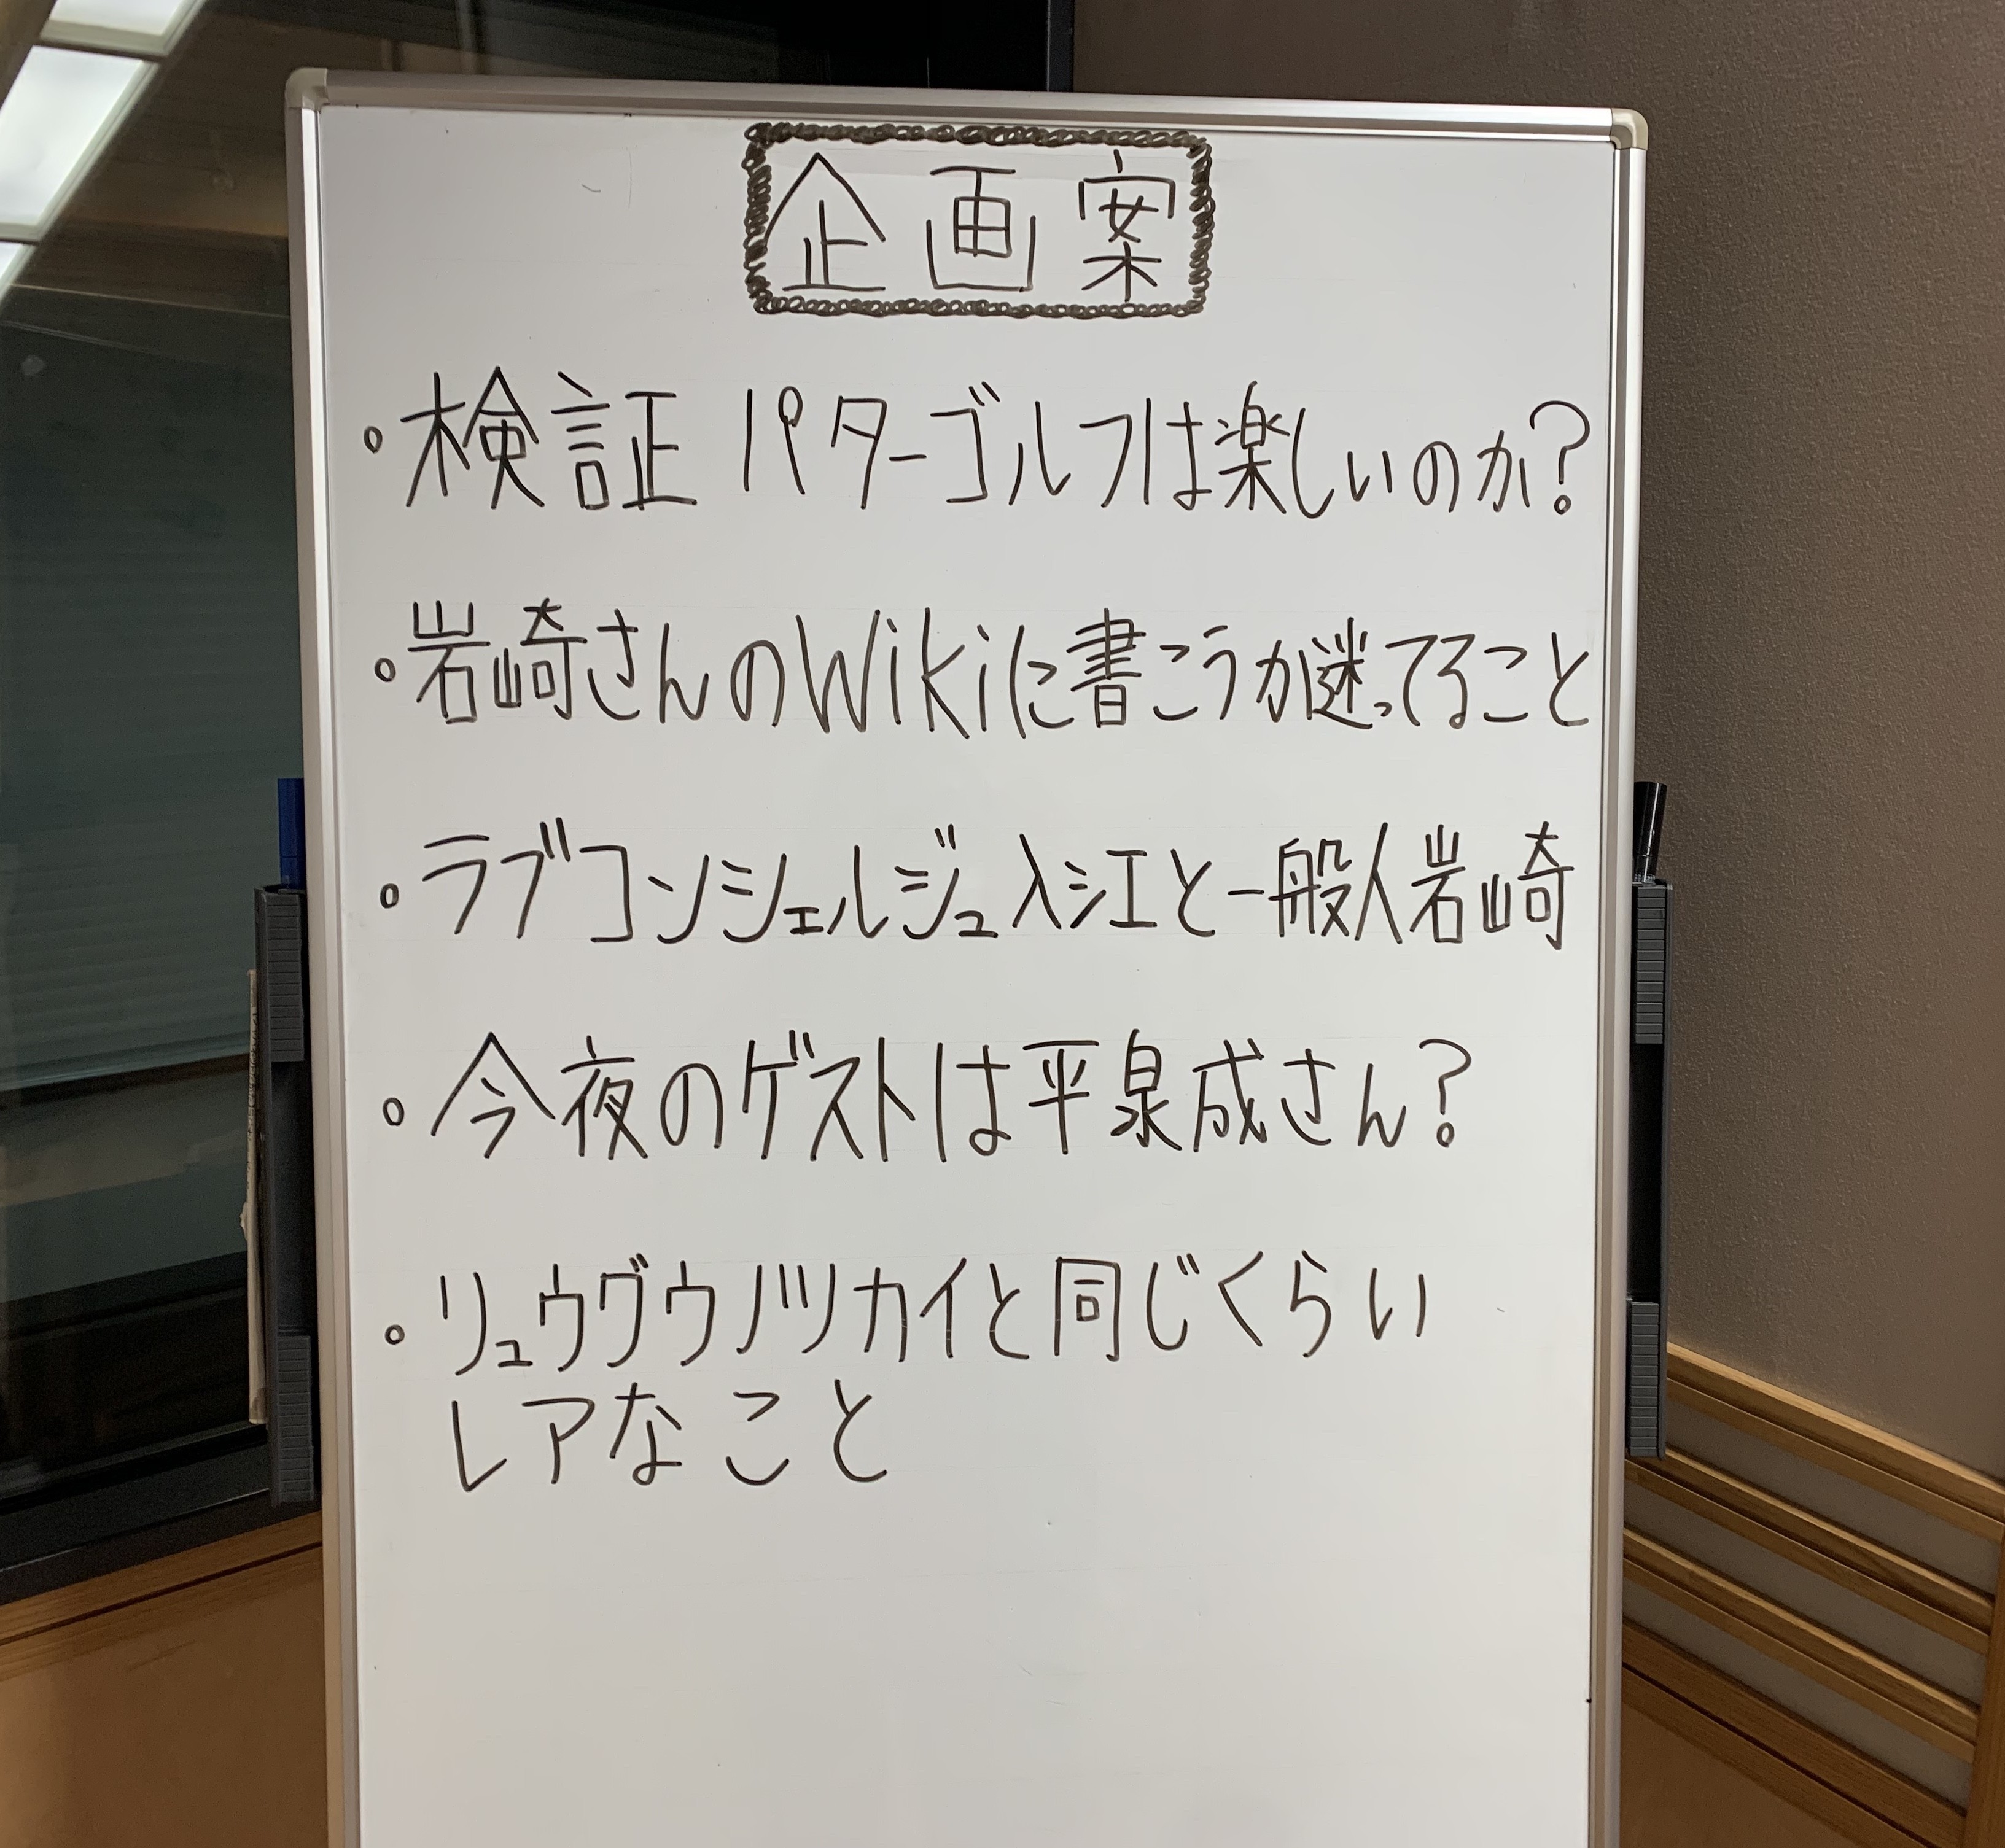 企画案
・検証 パターゴルフは楽しいのか?
・岩崎さんのWikiに書こうか迷ってること
・ラブコンシェルジュ入江と一般人岩崎
・今夜のゲストは平泉成さん?
・リュウグウノツカイと同じくらい
レアなこと